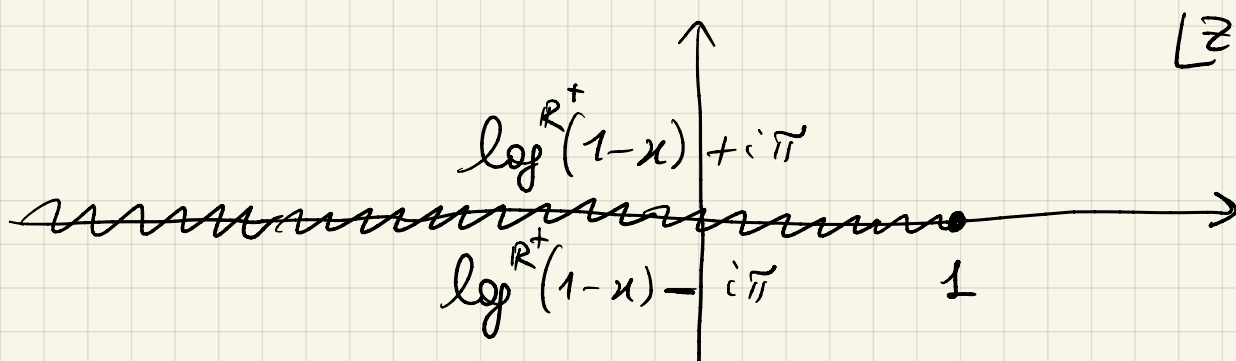 ⌊z
log^{ℝ⁺}(1-x) + iπ
log^{ℝ⁺}(1-x) - iπ
1